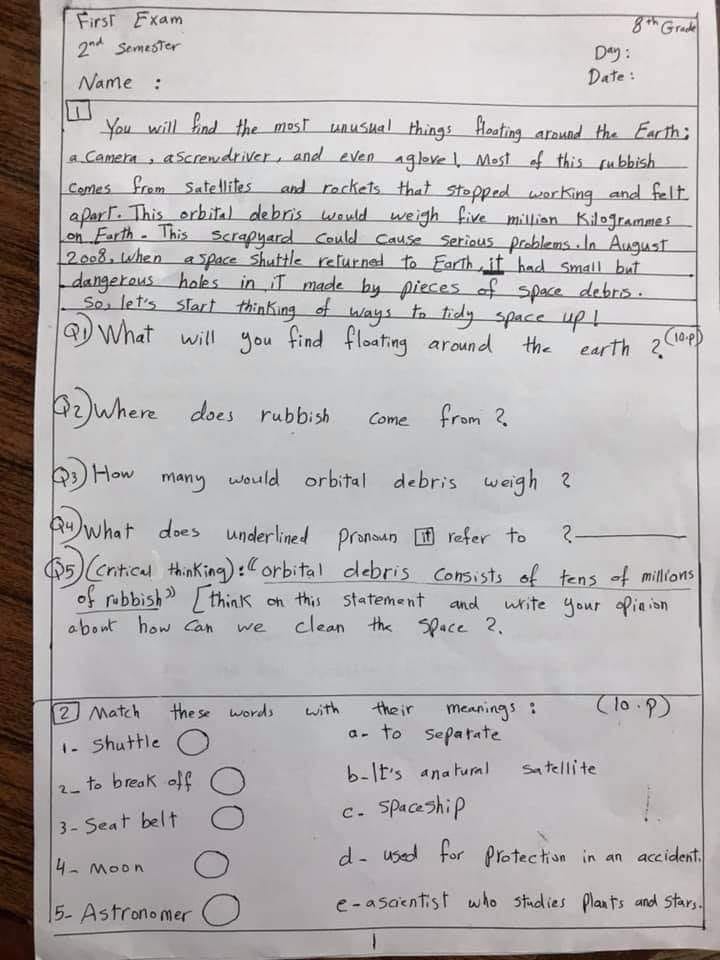 First Exam
8th Grade
2nd Semester
Day :
Name :
Date :
1
You will find the most unusual things floating around the Earth;
a camera, a screwdriver, and even a glove! Most of this rubbish
comes from satellites and rockets that stopped working and felt
apart. This orbital debris would weigh five million Kilogrammes
on Earth. This scrapyard could cause serious problems. In August
2008, when a space shuttle returned to Earth, it had small but
dangerous holes in it made by pieces of space debris.
So, let's start thinking of ways to tidy space up!
Q1) What will you find floating around the earth ? (10.p)
Q2) Where does rubbish come from ?
Q3) How many would orbital debris weigh ?
Q4) What does underlined pronoun it refer to ?
Q5) (Critical thinking): "orbital debris consists of tens of millions
of rubbish" [think on this statement and write your opinion
about how can we clean the space ?.
2 Match these words with their meanings : (10.p)
1- Shuttle
a- to separate
2- to break off
b- It's a natural satellite
3- Seat belt
c- spaceship
4- Moon
d- used for protection in an accident.
5- Astronomer
e- a scientist who studies plants and stars.
1